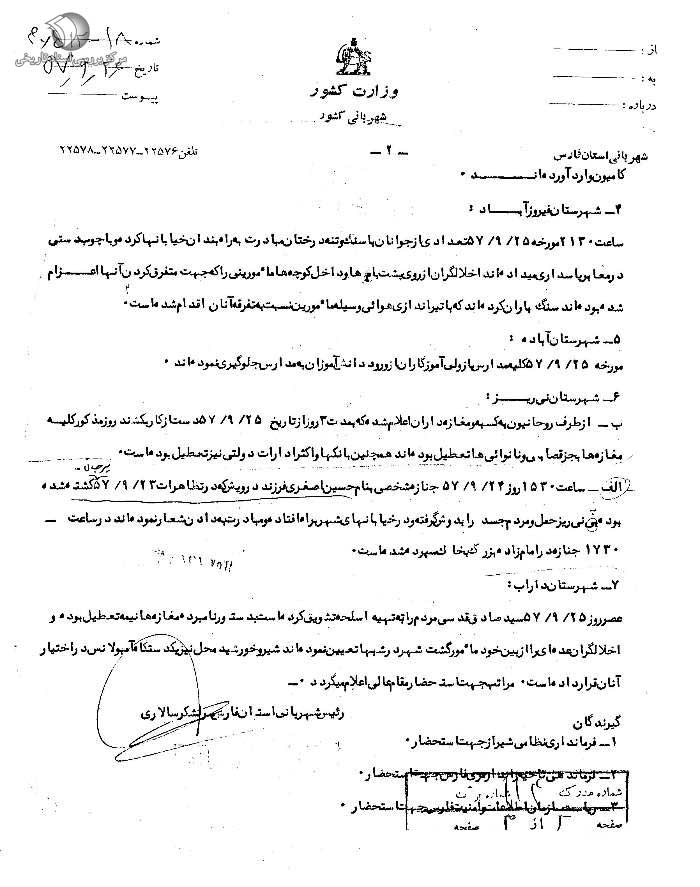 مرکز بررسی اسناد تاریخی
شماره
تاریخ
پیوست
وزارت کشور
شهربانی کشور
از :
به :
درباره :
شهربانی استان فارس
ـ ۲ ـ
تلفن ۲۲۵۷۶ـ۲۲۵۷۷ـ۲۲۵۷۸
کامیون وارد آورده اند .
۴ـ شهرستان فیروزآباد :
ساعت ۲۱۳۰ مورخه ۵۷/۹/۲۵ تعدادی از جوانان با سنگ و تنه درختان مبادرت به راه بندان خیابانها کرده و با چوبدستی
در معابر پاسداری میداده اند اخلالگران از روی پشت بامها و داخل کوچه ها مامورینی را که جهت متفرق کردن آنها اعزام
شده بوده اند سنگ باران کرده اند که با تیراندازی هوائی وسیله مامورین نسبت به تفرقه آنان اقدام شده است .
۵ـ شهرستان آباده :
مورخه ۵۷/۹/۲۵ کلیه مدارس باز ولی آموزگاران از ورود دانش آموزان به مدارس جلوگیری نموده اند .
۶ـ شهرستان نی ریز :
ب ـ از طرف روحانیون به کسبه و مغازه داران اعلام شده که بمدت ۳ روز از تاریخ ۵۷/۹/۲۵ دست از کار بکشند روز مذکور کلیه
مغازه ها بجز قصابی و نانوائی ها تعطیل بوده اند همچنین بانکها و اکثر ادارات دولتی نیز تعطیل بوده است .
الف ـ ساعت ۱۵۳۰ روز ۵۷/۹/۲۴ جنازه شخصی بنام حسین اصغری فرزند درویش که در تظاهرات ۵۷/۹/۲۳ کشته شده
بوده به نی ریز حمل و مردم جسد را بدوش گرفته و در خیابانهای شهر براه افتاده و مبادرت به دادن شعار نموده اند در ساعت ـ
۱۷۳۰ جنازه در امام زاده بزرگ بخاک سپرده شده است .
۷ـ شهرستان داراب :
عصر روز ۵۷/۹/۲۵ سید صادق قدسی مردم را به تهیه اسلحه تشویق کرده است بدستور نامبرده مغازه ها نیمه تعطیل بوده و
اخلالگران عده ای را از بین خود مامور گشت شهر در شبها تعیین نموده اند شیر و خورشید محل نیز یکدستگاه آمبولانس در اختیار
آنان قرار داده است . مراتب جهت استحضار مقام عالی اعلام میگردد .ـ
رئیس شهربانی استان فارس سرلشکر سالاری
گیرندگان
۱ـ فرمانداری نظامی شیراز جهت استحضار .
۲ـ فرماندهی ناحیه ژاندارمری فارس جهت استحضار .
۳ـ ریاست سازمان اطلاعات و امنیت فارس جهت استحضار .
شماره مدرک
صفحه از صفحه